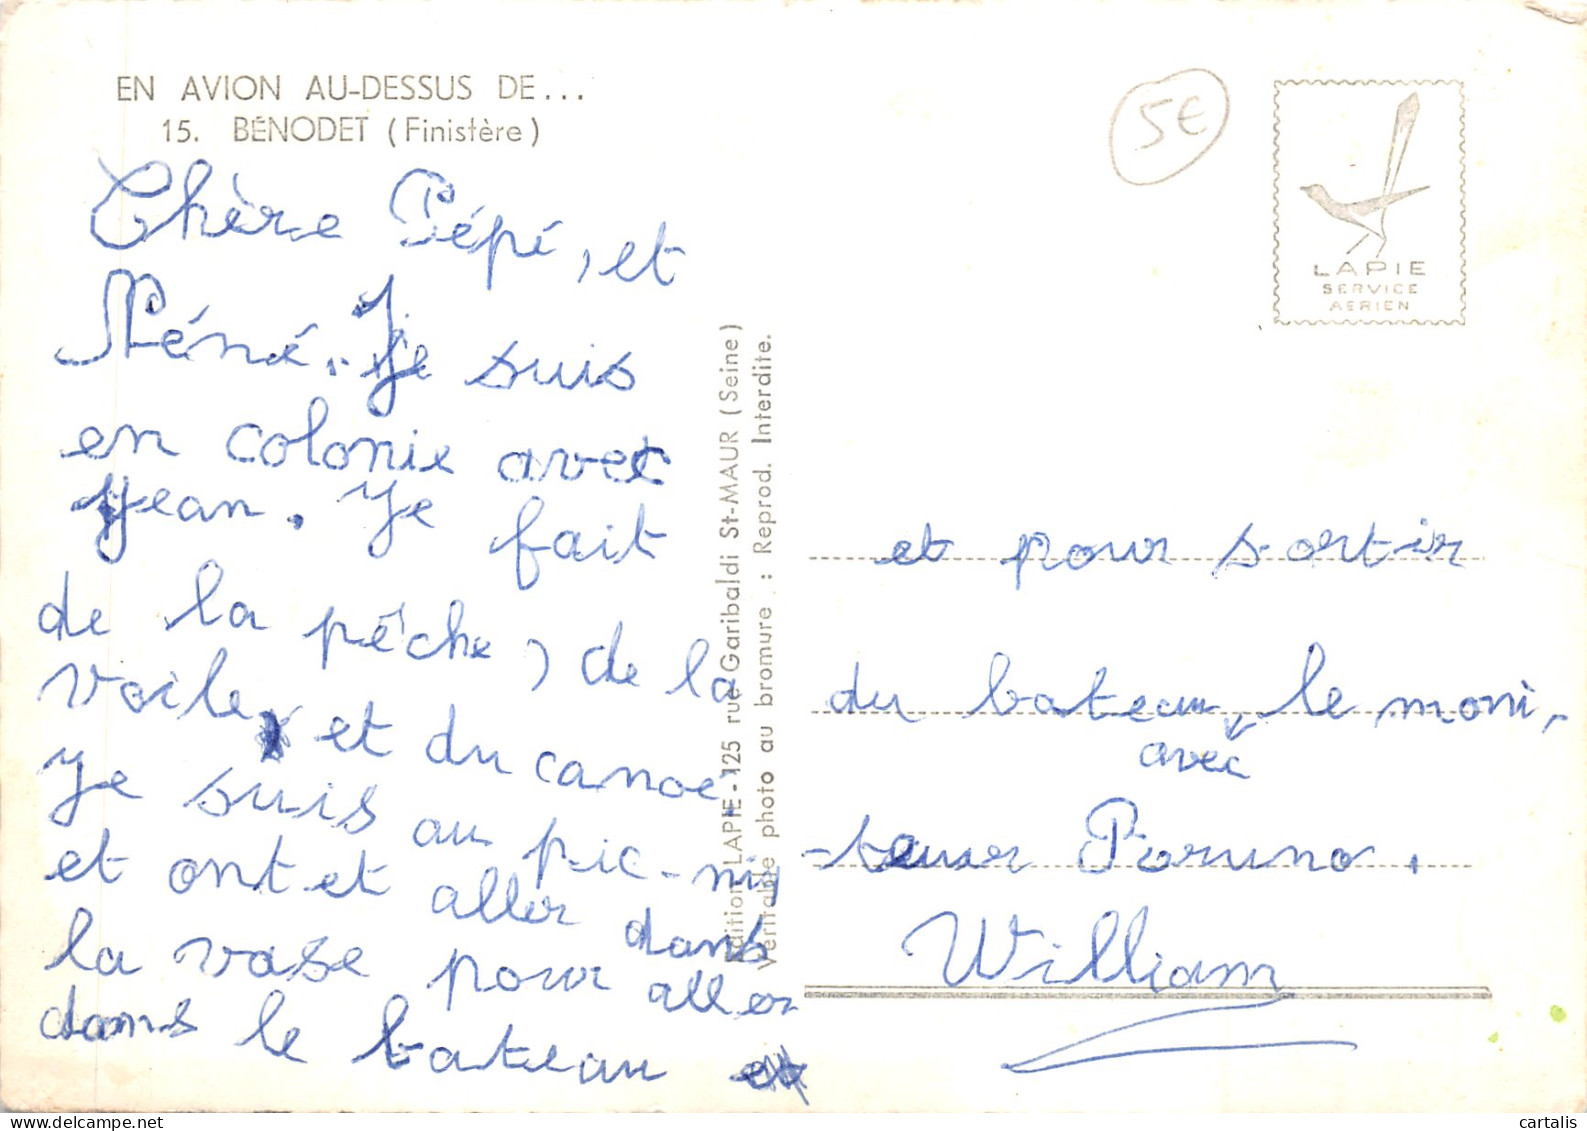 EN AVION AU-DESSUS DE...
15. BÉNODET (Finistère)
5€
LAPIE
SERVICE
AERIEN
Chère Pépé, et
Méné. Je suis
en colonie avec
Jean. Je fait
de la pêche, de la
voile, et du canoe.
Je suis au pic-niq
et ont et aller dans
la vase pour aller
dans le bateau et
Edition LAPIE - 125 rue Garibaldi St-MAUR (Seine)
Véritable photo au bromure : Reprod. Interdite.
et pour sortir
du bateau, le moni-
avec
-teur Bruno.
William
cartalis